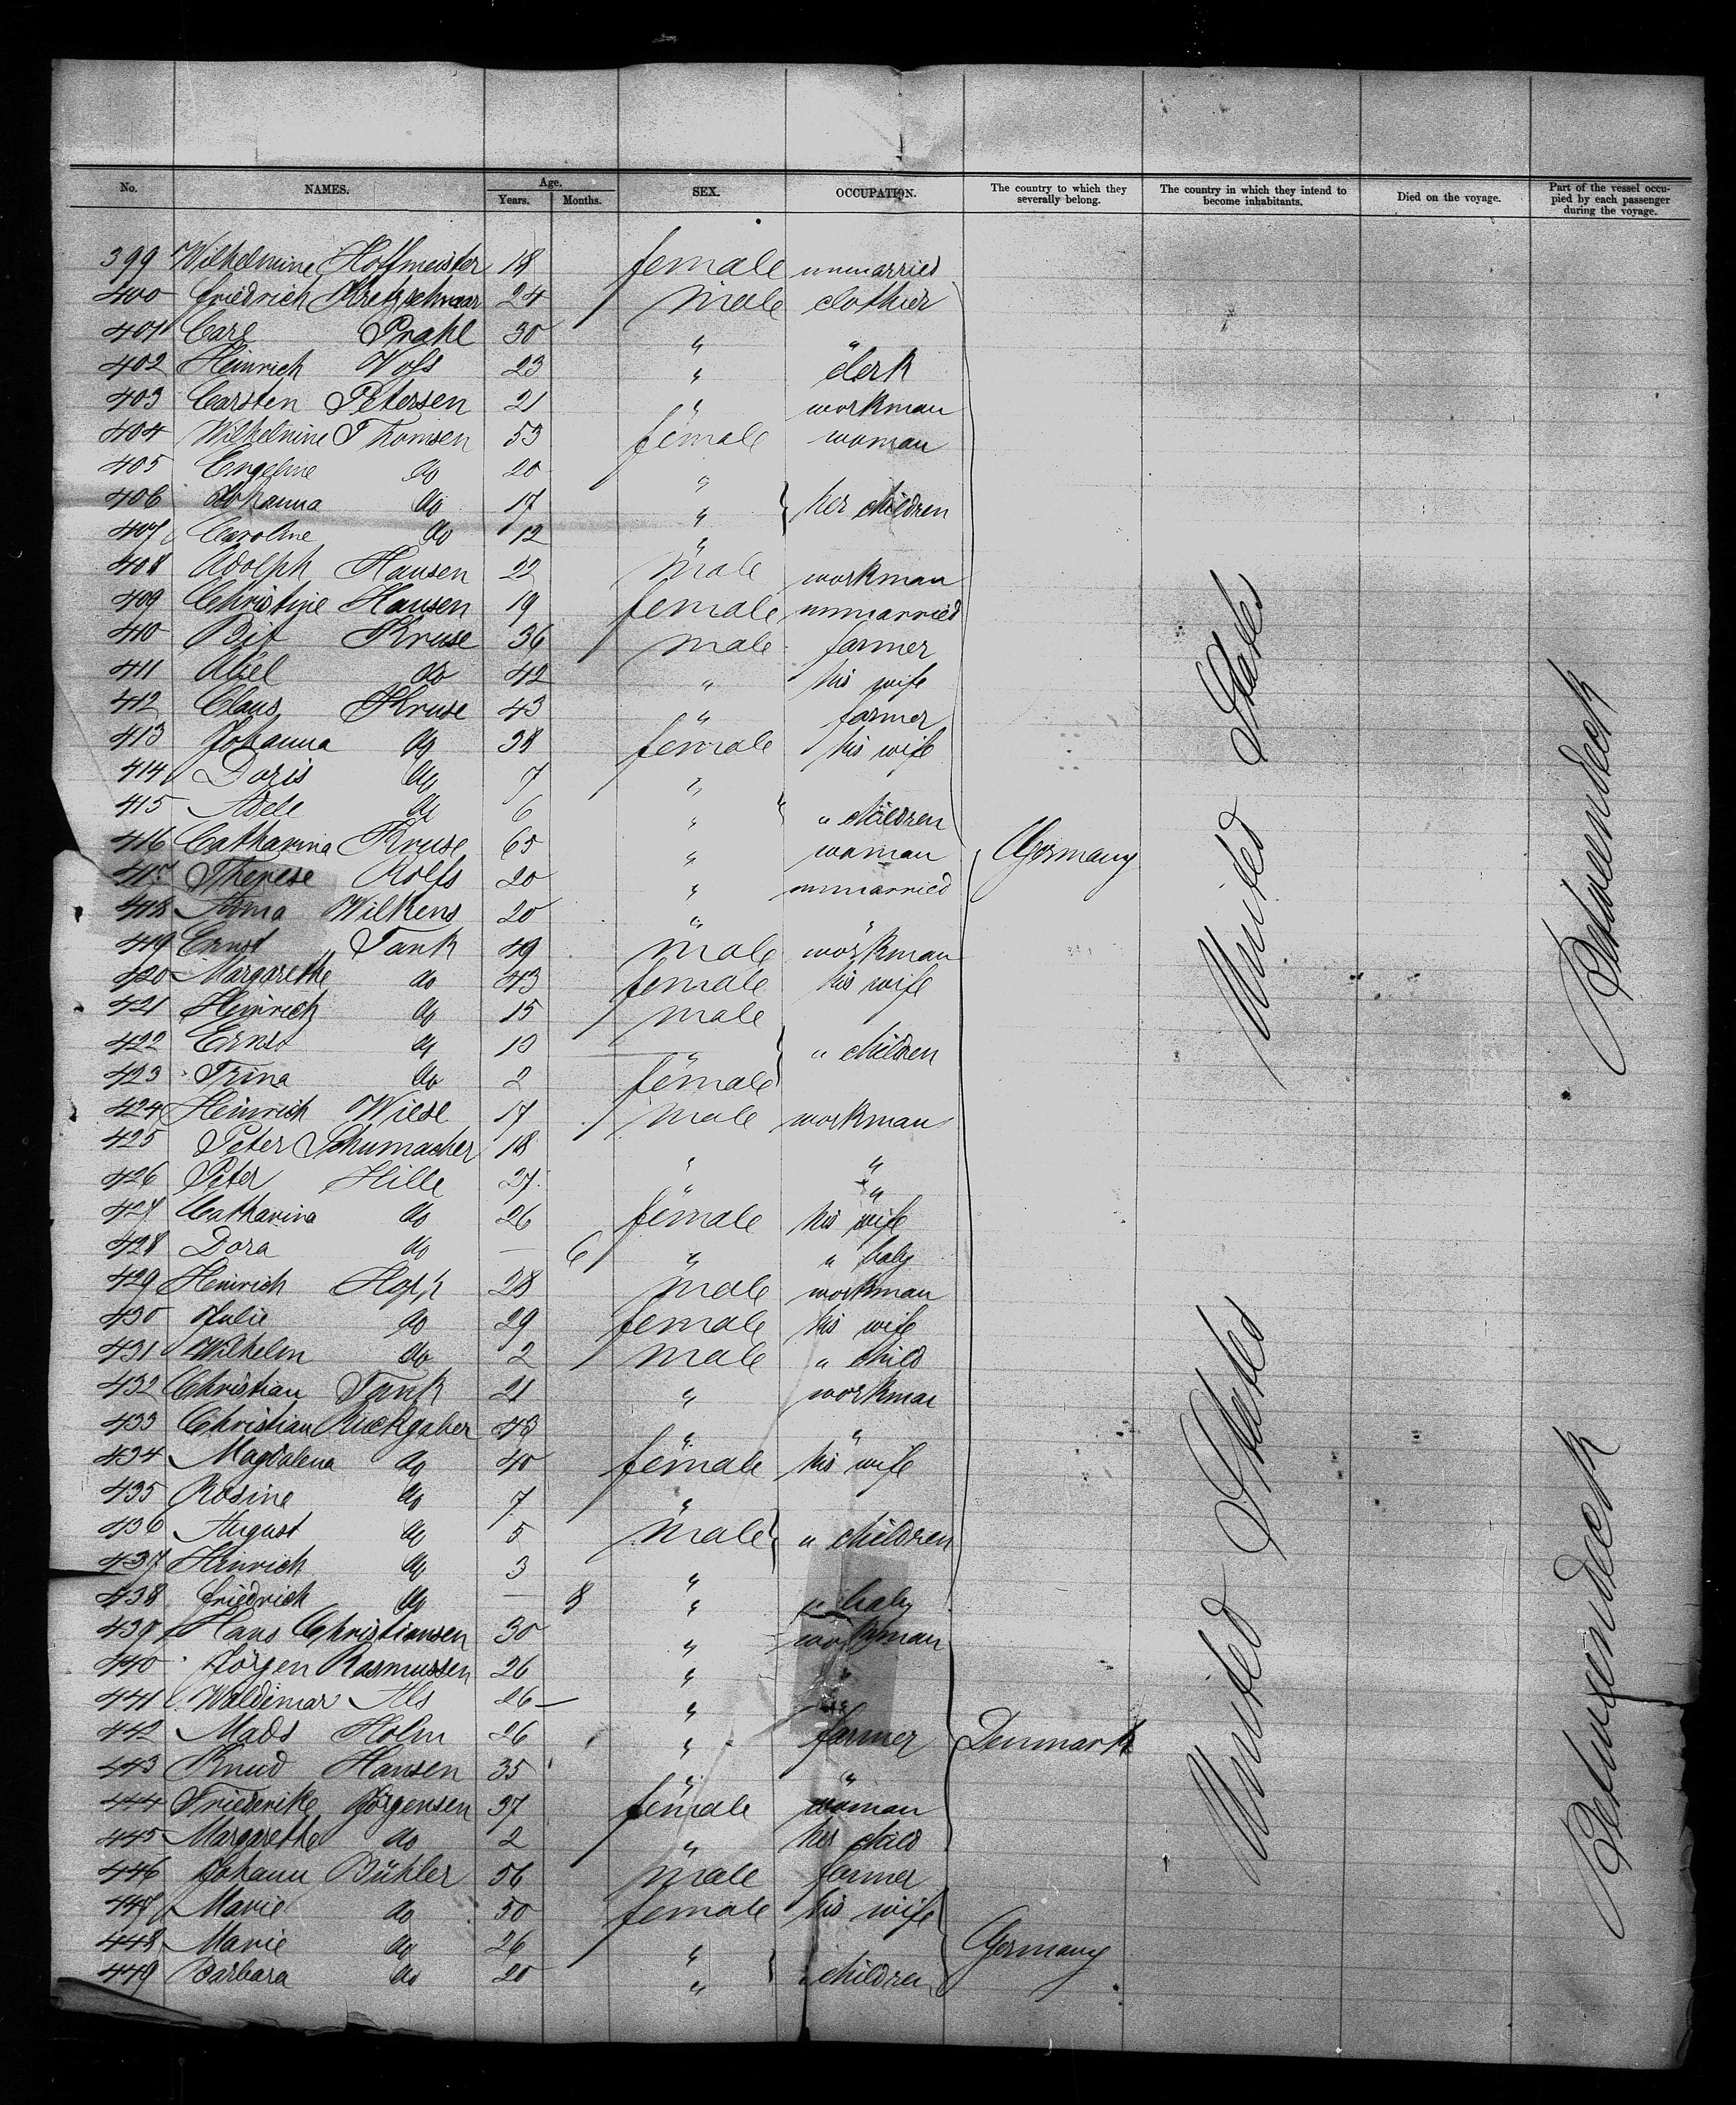 No. NAMES. Age. Years. Months. SEX. OCCUPATION. The country to which they severally belong. The country in which they intend to become inhabitants. Died on the voyage. Part of the vessel occupied by each passenger during the voyage.
399 Wilhelmine Hoffmeister 18 female unmarried
400 Friedrich Kretzschmar 24 male clothier
401 Carl Prahl 30 " "
402 Heinrich Voss 23 " clerk
403 Carsten Petersen 21 " workman
404 Wilhelmine Thomsen 53 female woman
405 Engeline do 20 "
406 Johanna do 17 " } her children
407 Caroline do 12 "
408 Adolph Hansen 22 male workman
409 Christine Hansen 19 female unmarried
410 Kruse 36 male farmer
411 Abel do 42 " his wife
412 Claus Kruse 43 " farmer
413 Johanna do 38 female his wife
414 Doris do 7 "
415 Adele do 6 " } " children
416 Catharina Kruse 65 " woman Germany
417 Therese Rolfs 20 " unmarried
418 Anna Wilkens 20 " "
419 Ernst Tank 49 male workman
420 Margarethe do 43 female his wife
421 Heinrich do 15 male
422 Ernst do " } " children
423 Trina do 2 female
424 Heinrich Wiese 17 male workman
425 Peter Schumacher 18 " "
426 Peter Hille 27 " "
427 Catharina do 26 female his wife
428 Dora do — 6 " " baby
429 Heinrich 28 male workman
430 Julie do 29 female his wife
431 Wilhelm do 2 male " child
432 Christian Tank 21 " workman
433 Christian Ruckgaber 48 " "
434 Magdalena do 40 female his wife
435 Rosine do 7 "
436 August do 5 male } " children
437 Hinrich do 3 "
438 Friedrich do — 8 " " baby
439 Hans Christiansen 30 " workman
440 Jörgen Rasmussen 26 " "
441 Waldemar Als 26 — " "
442 Mads Holm 26 " farmer Denmark
443 Knud Hansen 35 " "
444 Friederike Jörgensen 37 female woman
445 Margarethe do 2 " her child
446 Johann Bühler 56 male farmer
447 Marie do 50 female his wife
448 Marie do 26 " Germany
449 Barbara do 20 " } " children
United States
United States
Betweendeck
Betweendeck